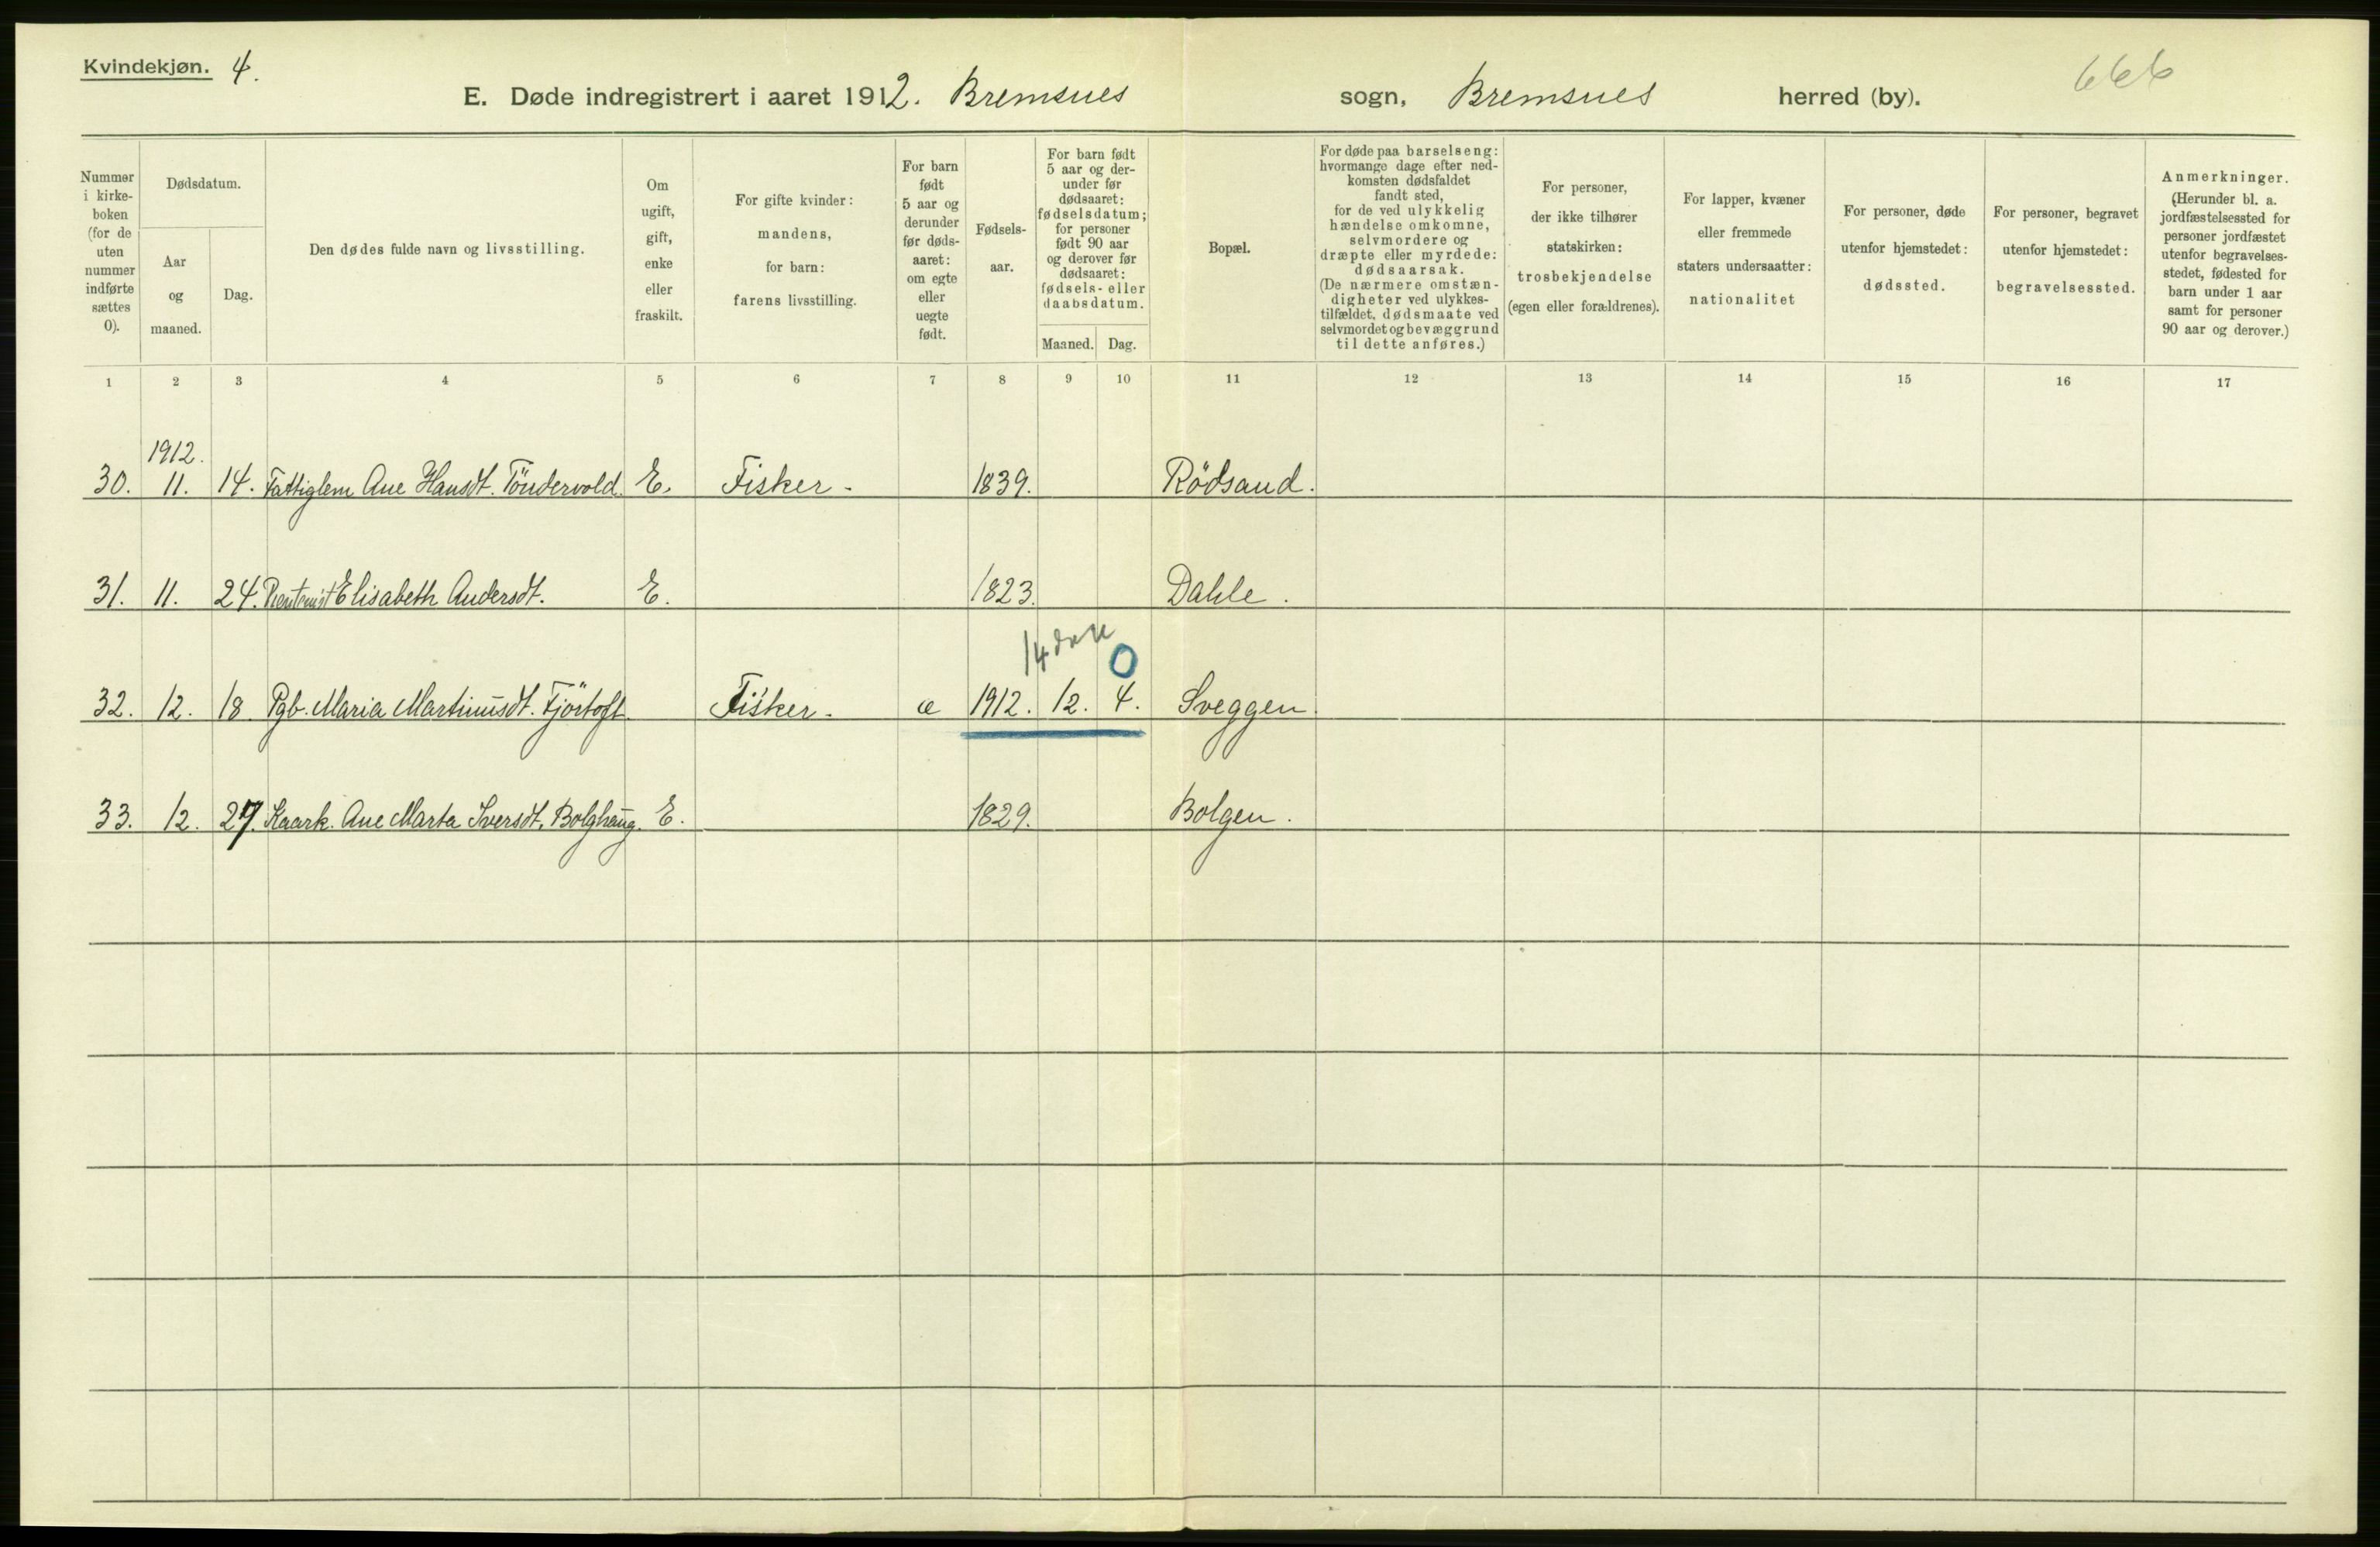 Kvindekjøn. 4.
666
E. Døde indregistrert i aaret 1912. Bremsnes sogn, Bremsnes herred (by).
Nummer i kirke-boken (for de uten nummer indførte sættes 0).
Dødsdatum.
Aar og maaned.
Dag.
Den dødes fulde navn og livsstilling.
Om ugift, gift, enke eller fraskilt.
For gifte kvinder: mandens, for barn: farens livsstilling.
For barn født 5 aar og derunder før døds-aaret: om egte eller uegte født.
Fødsels-aar.
For barn født 5 aar og der-under før dødsaaret: fødselsdatum; for personer født 90 aar og derover før dødsaaret: fødsels- eller daabsdatum.
Maaned.
Dag.
Bopæl.
For døde paa barselseng: hvormange dage efter ned-komsten dødsfaldet fandt sted, for de ved ulykkelig hændelse omkomne, selvmordere og dræpte eller myrdede: dødsaarsak. (De nærmere omstæn-digheter ved ulykkes-tilfældet, dødsmaate ved selvmordet og bevæggrund til dette anføres.)
For personer, der ikke tilhører statskirken: trosbekjendelse (egen eller forældrenes).
For lapper, kvæner eller fremmede staters undersaatter: nationalitet
For personer, døde utenfor hjemstedet: dødssted.
For personer, begravet utenfor hjemstedet: begravelsessted.
Anmerkninger. (Herunder bl. a. jordfæstelsessted for personer jordfæstet utenfor begravelses-stedet, fødested for barn under 1 aar samt for personer 90 aar og derover.)
1 2 3 4 5 6 7 8 9 10 11 12 13 14 15 16 17
1912.
30. 11. 14. Fattiglem Ane Hansdt. Töndervold. E. Fisker. 1839. Rödsand.
31. 11. 24. Rentenist Elisabeth Andersdt. E. 1823. Dahle.
14 0
32. 12. 18. Pgb. Maria Martinusdt. Fjörtoft. Fisker. æ 1912. 12. 4. Sveggen.
33. 12. 27. Kaark. Ane Marta Iversdt. Bolghaug. E. 1829. Bolgen.